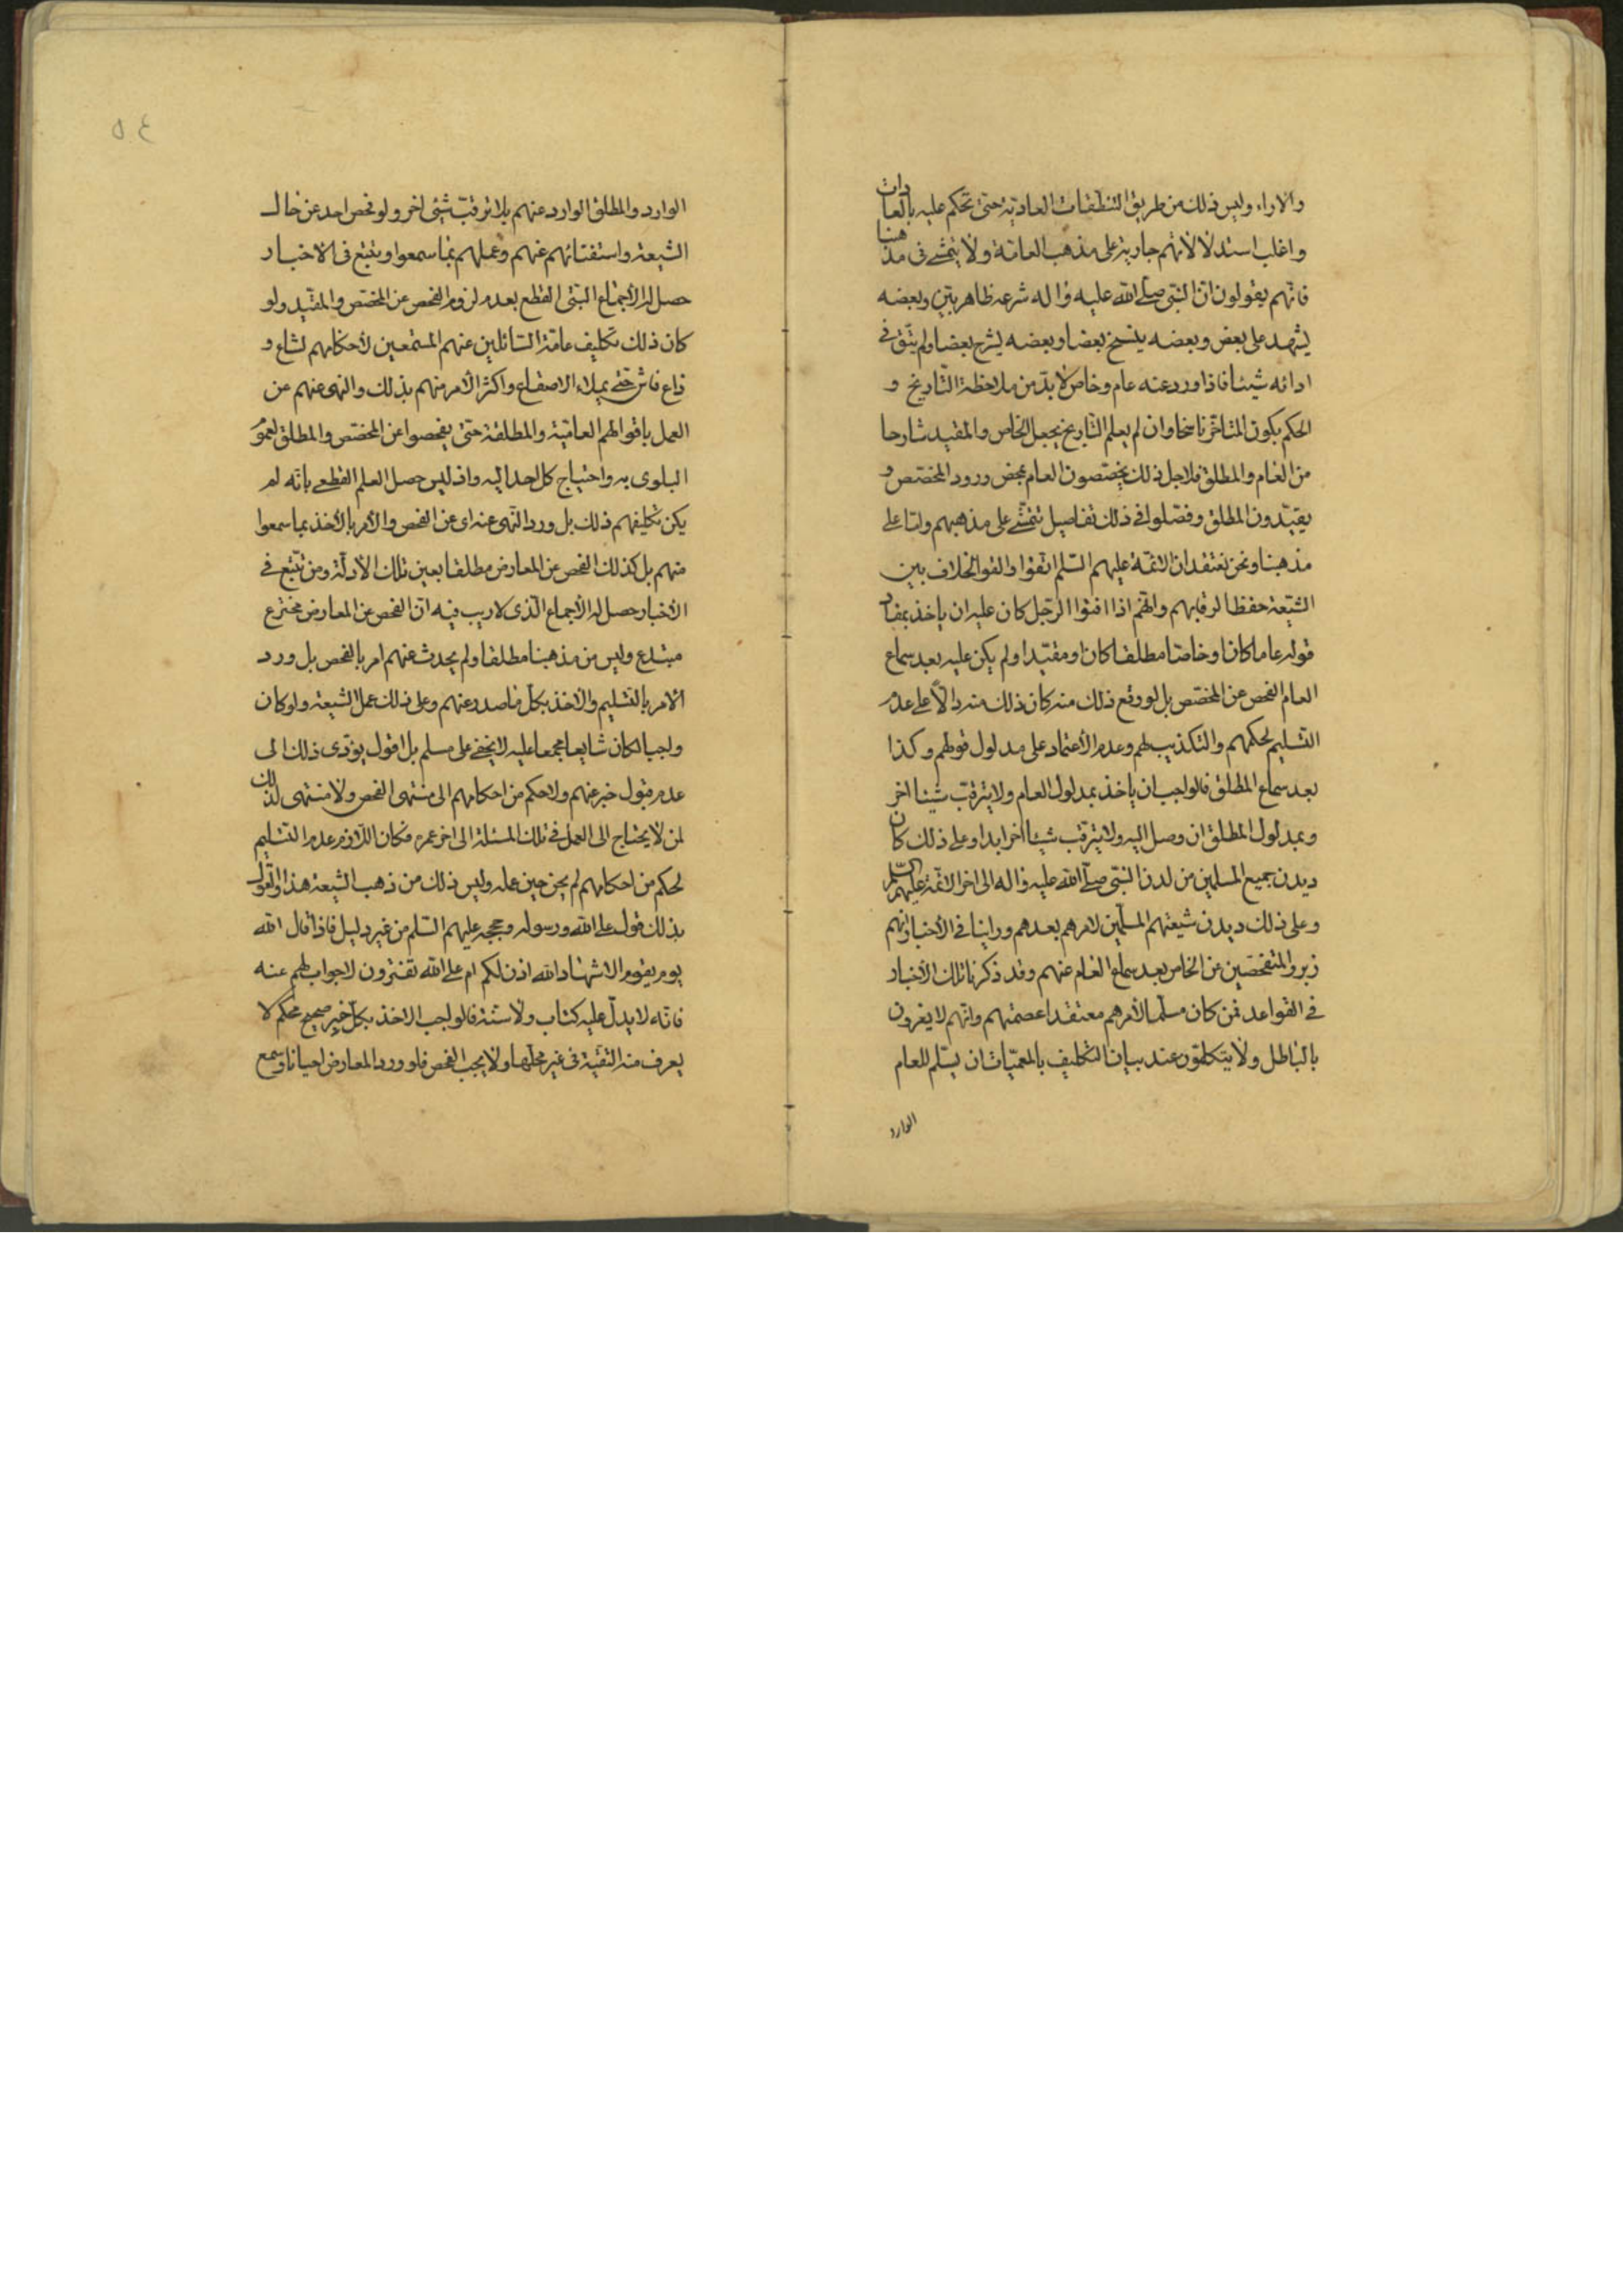 والاراء وليس ذلك من طريق التنظفات العادية حتى تحكم عليه بالعادات
واغلب استدلالاتهم جارية على مذهب العامة ولا يتمشى فى مذهبنا
فانهم يقولون ان النبى صلى الله عليه واله شرعه ظاهر بين وبعضه
يشهد على بعض وبعضه ينسخ بعضا وبعضه يشرح بعضا ولم يتق فى
ادائه شيئا فاذا ورد عنه عام وخاص لا بد من ملاحظة التاريخ و
الحكم بكون المتاخر ناسخا وان لم يعلم التاريخ يجعل الخاص والمقيد شارحا
من العام والمطلق فلاجل ذلك يخصصون العام بمحض ورود المخصص و
يقيدون المطلق وفصلوا فى ذلك تفاصيل تتمشى على مذهبهم واما على
مذهبنا ونحن نعتقد ان الائمة عليهم السلم اتقوا والقوا الخلاف بين
الشيعة حفظا لرقابهم وانهم اذا افتوا الرجل كان عليه ان ياخذ بمفاد
قوله عاما كان او خاصا مطلقا كان او مقيدا ولم يكن عليه بعد سماع
العام الفحص عن المخصص بل لو وقع ذلك منه كان ذلك منه دالا على عدم
التسليم لحكمهم والتكذيب لهم وعدم الاعتماد على مدلول قولهم وكذا
بعد سماع المطلق فالواجب ان ياخذ بمدلول العام ولا يترقب شيئا اخر
وبمدلول المطلق ان وصل اليه ولا يترقب شيئا اخر ابدا وعلى ذلك كان
ديدن جميع المسلمين من لدن النبى صلى الله عليه واله الى اخر الائمة عليهم السلم
وعلى ذلك ديدن شيعتهم المسلمين لامرهم بعدهم وراينا فى الاخبار انهم
زبروا المتفحصين عن الخاص بعد سماع العام عنهم وقد ذكرنا تلك الاخبار
فى القواعد فمن كان مسلما لامرهم معتقدا عصمتهم وانهم لا يغرون
بالباطل ولا يتكلمون عند بيان التكليف بالمعميات ان يسلم للعام
الوارد
٥٤
الوارد والمطلق الوارد عنهم بلا ترقب شىء اخر ولو تفحص احد عن حال
الشيعة واستفتائهم عنهم وعملهم بما سمعوا ويتتبع فى الاخبار
حصل له الاجماع البتى القطع بعدم لزوم الفحص عن المخصص والمقيد ولو
كان ذلك تكليف عامة السائلين عنهم المستمعين لاحكامهم لشاع و
ذاع فاش حتى يملاء الاصقاع واكثر الامر منهم بذلك والنهى عنهم عن
العمل باقوالهم العامية والمطلقة حتى يفحصوا عن المخصص والمطلق لعموم
البلوى به واحتياج كل احد اليه واذ ليس حصل العلم القطعى بانه لم
يكن تكليفهم ذلك بل ورد النهى عنه اى عن الفحص والامر بالاخذ بما سمعوا
منهم بل كذلك الفحص عن المعارض مطلقا بعين تلك الادلة ومن تتبع فى
الاخبار حصل له الاجماع الذى لا ريب فيه ان الفحص عن المعارض مخترع
مبتدع وليس من مذهبنا مطلقا ولم يحدث عنهم امر بالفحص بل ورد
الامر بالتسليم والاخذ بكل ما صدر عنهم وعلى ذلك عمل الشيعة ولو كان
واجبا لكان شايعا مجمعا عليه لا يخفى على مسلم بل اقول يؤدى ذلك الى
عدم قبول خبر عنهم ولا حكم من احكامهم الى منتهى الفحص ولا منتهى لذلك
لمن لا يحتاج الى العمل فى تلك المسئلة الى اخر عمره فكان اللازم عدم التسليم
لحكم من احكامهم لم يحن حين عمله وليس ذلك من ذهب الشيعة هذا والقول
بذلك قول على الله ورسوله وحججه عليهم السلم من غير دليل فاذا قال الله
يوم يقوم الاشهاد الله اذن لكم ام على الله تفترون لا جواب لهم عنه
فانه لا يدل عليه كتاب ولا سنة فالواجب الاخذ بكل خبر صحيح محكم لا
يعرف منه التقية فى غير محلها ولا يجب الفحص فلو ورد المعارض احيانا وسمع